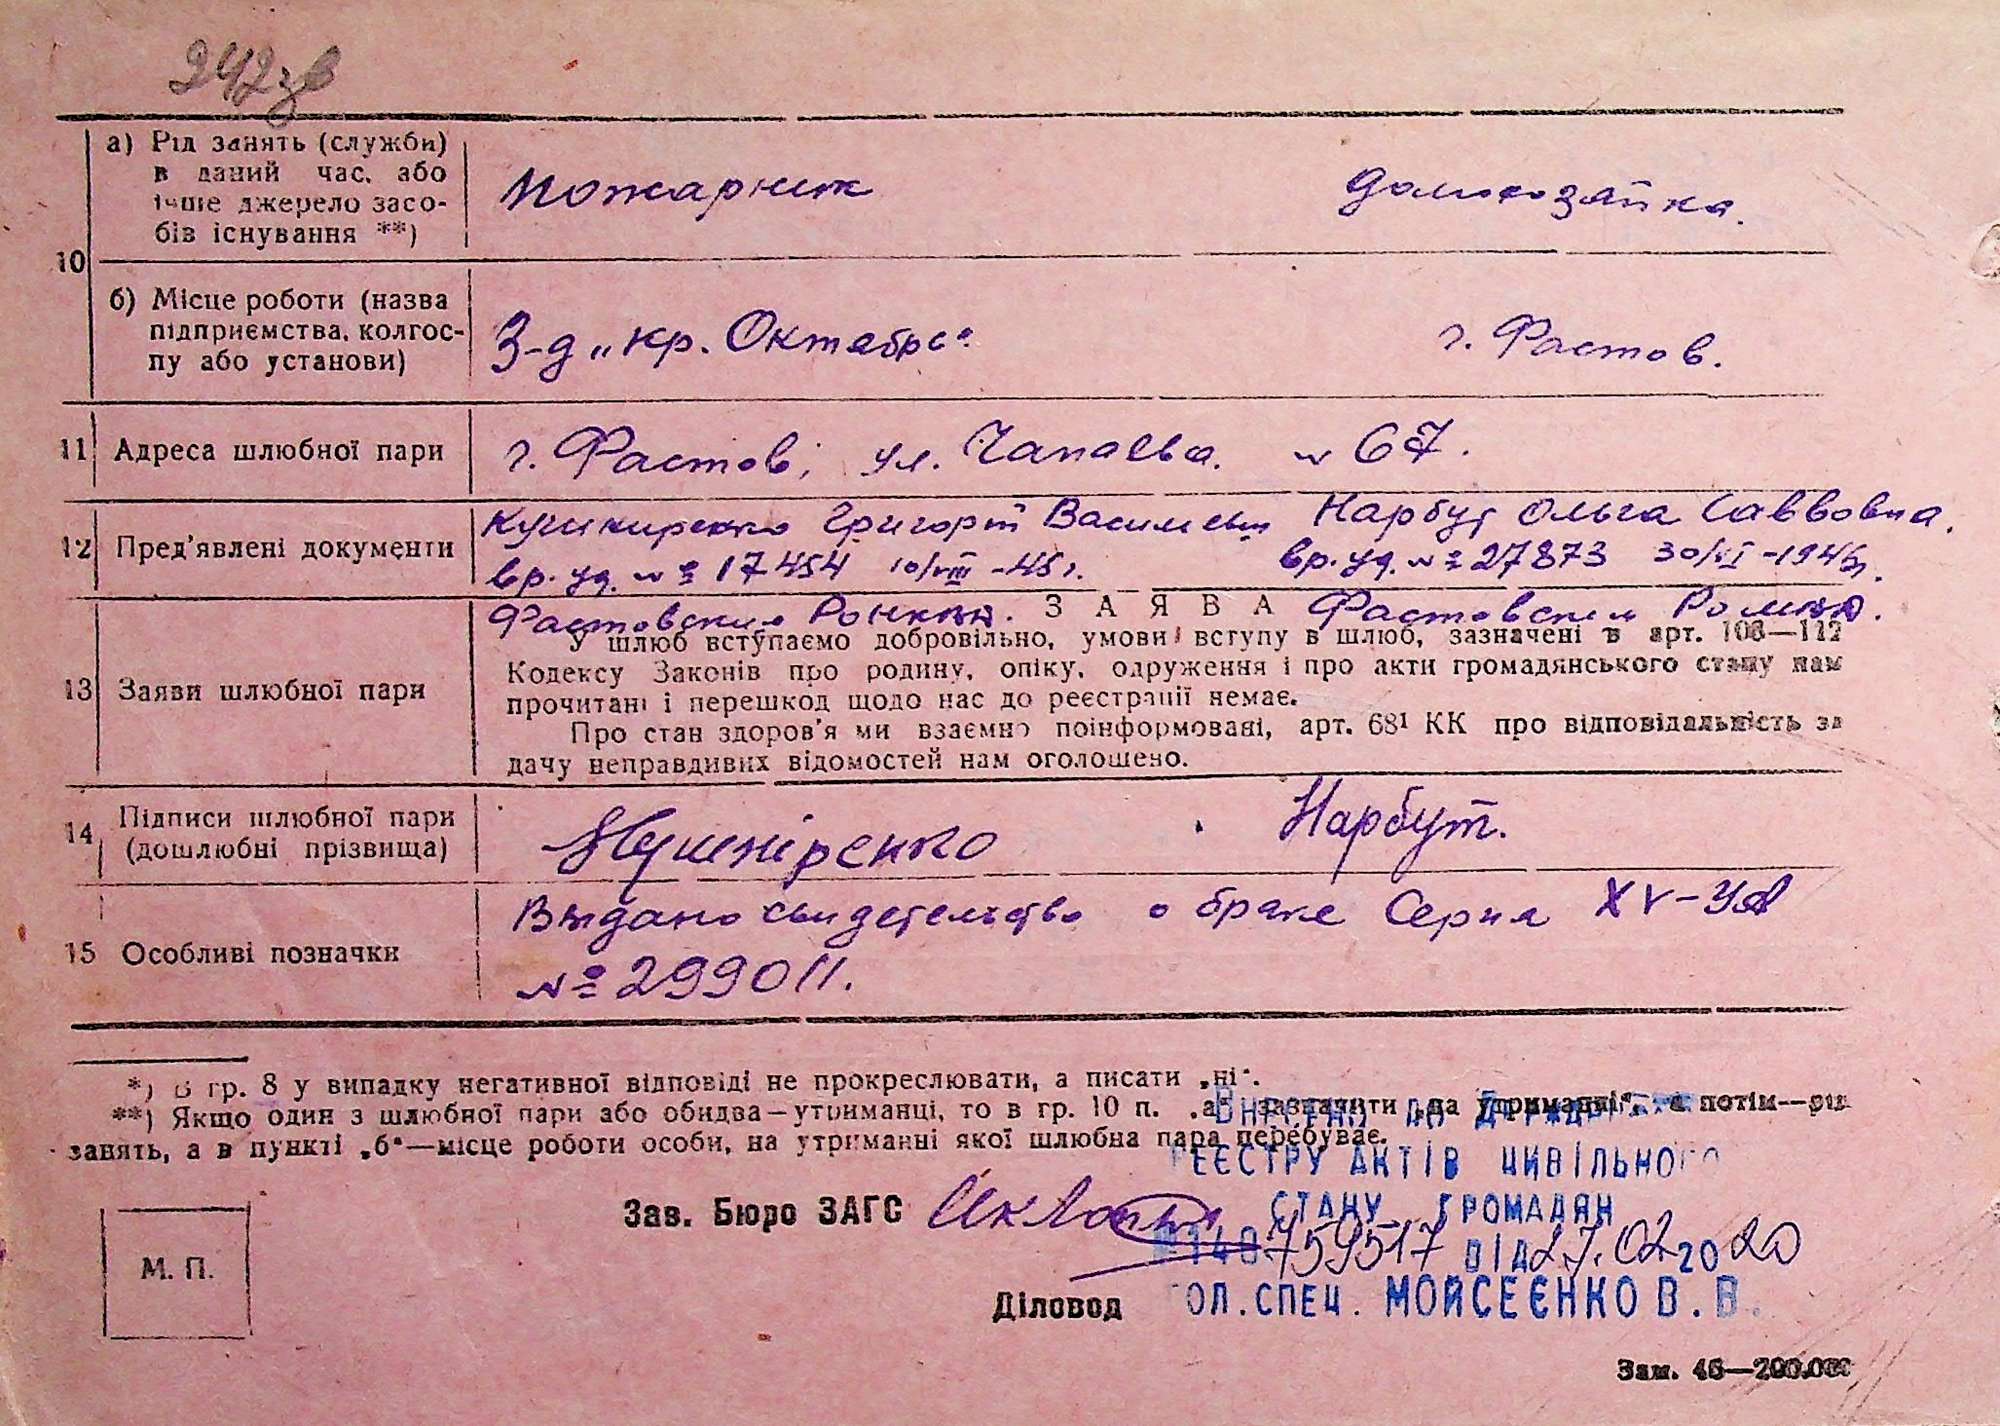 242зв
10
а) Рід занять (служби) в даний час, або інше джерело засобів існування **)
пожарник
домохозайка.
б) Місце роботи (назва підприємства, колгоспу або установи)
З-д „кр. Октябрь"
г. Фастов.
11 Адреса шлюбної пари
г. Фастов, ул. Чапаева. № 67.
12 Пред'явлені документи
Кушниренко Григорій Васильевич
вр. уд. № 17454 10/VIII-45г.
Фастовским
Нарбут Ольга Савовна.
вр. уд. № 27873 30/VI-194
Фастовским
З А Я В А
13 Заяви шлюбної пари
У шлюб вступаємо добровільно, умови вступу в шлюб, зазначені в арт. 108—112
Кодексу Законів про родину, опіку, одруження і про акти громадянського стану нам
прочитані і перешкод щодо нас до реєстрації немає.
Про стан здоров'я ми взаємно поінформовані, арт. 68¹ КК про відповідальність за
дачу неправдивих відомостей нам оголошено.
14 Підписи шлюбної пари (дошлюбні прізвища)
Кушніренко
Нарбут.
15 Особливі позначки
Выдано свидетельство о браке Серия XV-УА
№ 299011.
*) В гр. 8 у випадку негативної відповіді не прокреслювати, а писати „ні".
**) Якщо один з шлюбної пари або обидва—утриманці, то в гр. 10 п. „а" зазначити „на утриманні", а потім—рід
занять, а в пункті „б"—місце роботи особи, на утриманні якої шлюбна пара перебуває.
Внесено до Державного
реєстру актів цивільного
стану громадян
№140759517 від 27.02 2020
гол. спец. Мойсеєнко В. В.
Зав. Бюро ЗАГС
Діловод
М. П.
Зам. 46—200.000